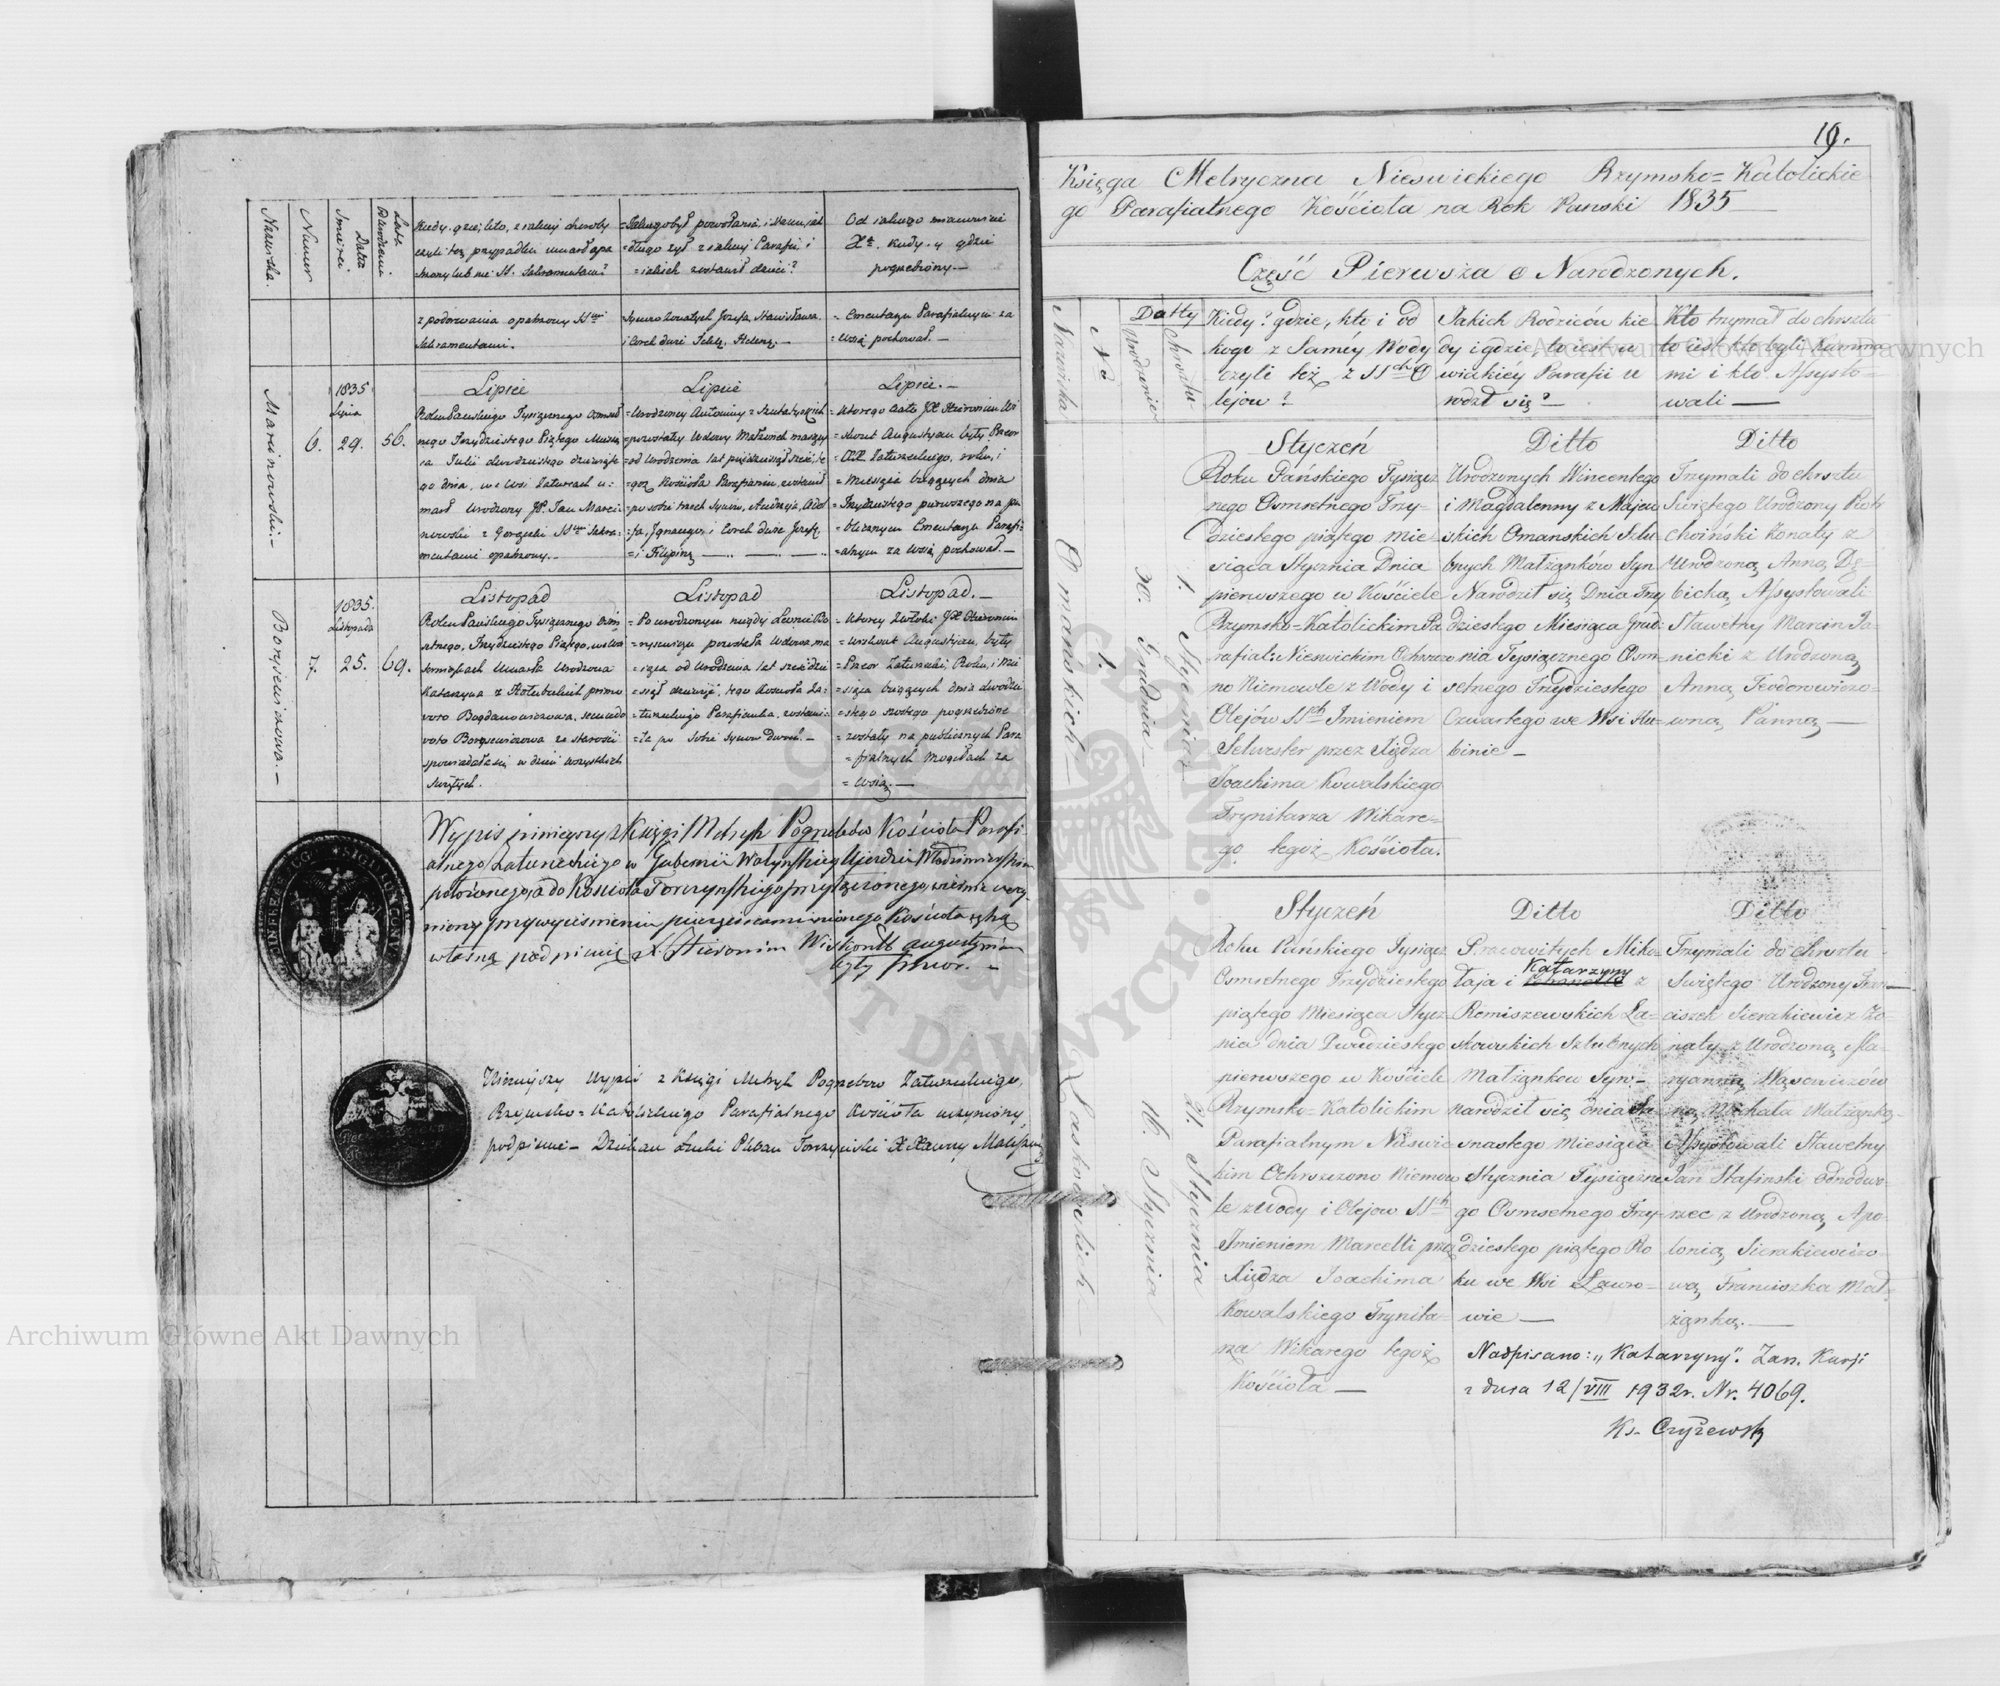 Nazwiska.
Numer
Data Śmierci
Lata
Kiedy, gdzie, kto, z jakiej choroby
czyli też przypadku umarł opa
trzony lub nie SS. Sakramentami?
długo żył z jakiej Parafii i
jakich zostawił dzieci?
Od jakiego mianowicie
Xa. kiedy y gdzie
pogrzebiony.—
opatrzony SSmi
Sakramentami.
i Corek dwie
= Cmentarzu Parafialnym za
= Wsią pochował. —
Marcinowski.—
6.
1835
Lipca
29.
56.
Lipiec
Roku Pańskiego Tysiącznego Osmset
nego Trzydziestego Piątego Miesią
ca Julii dwudziestego dziewiąte
go dnia, we Wsi Zaturcach u=
marł Urodzony JP. Jan Marci=
nowski z Gorączki SSmi Sakra=
mentami opatrzony.—
Lipiec
= pozostały Wdowy Małżonek mający
= od Urodzenia lat pięćdziesiąt sześć, te
= goż Kościoła Parafianin, zostawił
= po sobie trzech Synow, Andrzeja, Adol
= fa, Ignacego, i Corek dwie Jozefę
= i Filipinę —
Lipiec.—
= Ktorego Ciało JX Hieronim Wi
= skont Augustyan były Przeor
= XX. Zaturecki, roku, i
= Miesiąca bieżących dnia
= Trzydziestego pierwszego na pu
= blicznym Cmentarzu Parafi=
= alnym za Wsią pochował.—
Borysiewiczowa.—
7.
1835.
Listopada
25.
69.
Listopad
Roku Pańskiego Tysiącznego Osm=
setnego, Trzydziestego Piątego, we Wsi
Umarła Urodzona
Katarzyna z Hołubickich primo
voto Bogdanowiczowa, secundo
voto Borysewiczowa ze starości
spowiadała się w dzień Wszystkich
Świętych.
Listopad
= Po urodzonym niegdy Leonie Bo
= rysewiczu pozostała Wdowa, ma
= jąca od Urodzenia lat sześćdzie
= siąt dziewięć, tego Kościoła Za=
= tureckiego Parafianka, zostawi=
= ła po sobie Synow dwoch.—
Listopad.—
= Ktorey Zwłoki JX Hieronim
= Wiskont Augustyan, były
= Przeor Zaturecki, Roku, i Mie
= siąca bieżących dnia dwudzie
= stego szostego pogrzebione
= zostały na publicznych Para
= fialnych Mogiłach za
= Wsią.—
Wypis niniejszy z Księgi Metryk Pogrzebów Kościoła Parafi
alnego Zatureckiego w Gubernii Wołyńskiey Ujezdzie Włodzimierskim
położonego, a do Kościoła Torczyńskiego przyłączonego, wiernie uczy
niony przy wyciśnieniu pieczęci Kościoła ręką
własną podpisuię X. Hieronim Wiskontt augustynian
były przeor.—
Niniejszy Wypis z Księgi Metryk Pogrzebow Zatureckiego,
Rzymsko=Katolickiego Parafialnego Kościoła uczyniony
podpisuie— Dziekan Łucki Pleban Torczyński X Xawery
19.
Księga Metryczna Nieswickiego Rzymsko=Katolickie
go Parafialnego Kościoła na Rok Pański 1835—
Część Pierwsza o Narodzonych.
Nazwiska
No
Datty
Urodzenia
Chrztu
Kiedy? gdzie, kto i od
kogo z Samey Wody
czyli też z SSch O
lejow?
Jakich Rodziców kie
dy i gdzie, to iest w
wiakiey Parafii u
rodził się?—
Kto trzymał do chrztu
to iest kto byli Kumma
mi i kto Assysto=
wali —
Omańskich—
1.
30. Grudnia—
1. Stycznia
Styczeń
Roku Pańskiego Tysiącz
nego Osmsetnego Trzy=
dziestego piątego Mie=
siąca Stycznia Dnia
pierwszego w Kościele
Rzymsko=Katolickim Pa
rafial: Nieswickim Ochrzczo
no Niemowle z Wody i
Olejów SSch Imieniem
Selwester przez Xiędza
Joachima Kowalskiego
Trynitarza Wikare=
go tegoż Kościoła.
Ditto
Urodzonych Wincentego
i Magdalenny z Majew
skich Omanskich Szlu
bnych Małżąnków Syn
Narodził się Dnia Trzy
dziestego Miesiąca Grud=
nia Tysiącznego Osm=
setnego Trzydziestego
Czwartego we Wsi
binie —
Ditto
Trzymali do chrztu
Swiętego Urodzony Piotr
Choiński Konaty z
Urodzoną Anną Dę=
bicką, Assystowali
Sławetny Marcin Ja=
nicki z Urodzoną
Anną Teodorowiczo=
wną Panną—
Laskowskich—
2.
16. Stycznia
21. Stycznia
Styczeń
Roku Pańskiego Tysiącz
Osmsetnego Trzydziestego
piątego Miesiąca Stycz
nia dnia Dwudziestego
pierwszego w Kościele
Rzymsko=Katolickim
Parafialnym Nieswic
kim Ochrzczono Niemow
le z Wody i Olejow SSch
Imieniem Marcelli przez
Xiędza Joachima
Kowalskiego Trynita=
rza Wikarego tegoż
Kościoła—
Ditto
Pracowitych Miko=
łaja i Katarzyny z
Remiszewskich La=
skowskich Szlubnych
Małżąnkow Syn—
narodził się dnia Sze
snastego Miesiąca
Stycznia Tysiączne
go Osmsetnego Trzy=
dziestego piątego Ro
ku we Wsi Ławro=
wie—
Ditto
Trzymali do Chrztu
Swiętego Urodzony Fran—
ciszek Sierakiewicz Ko=
naty z Urodzoną Ma=
ryanną Wąsowiczów
ną, Michała Małżąnką,
Assystowali Sławetny
Jan Stafinski Odnodwo=
rzec z Urodzoną Apo=
lonią Sierakiewiczo=
wą Franciszka Mał=
żąnką.—
Nadpisano: „Katarzyny”. Zarz. Kurji
z dnia 12/VIII 1932r. Nr. 4069.
Ks. Czyżewski
Archiwum Główne Akt Dawnych
Archiwum Główne Akt Dawnych